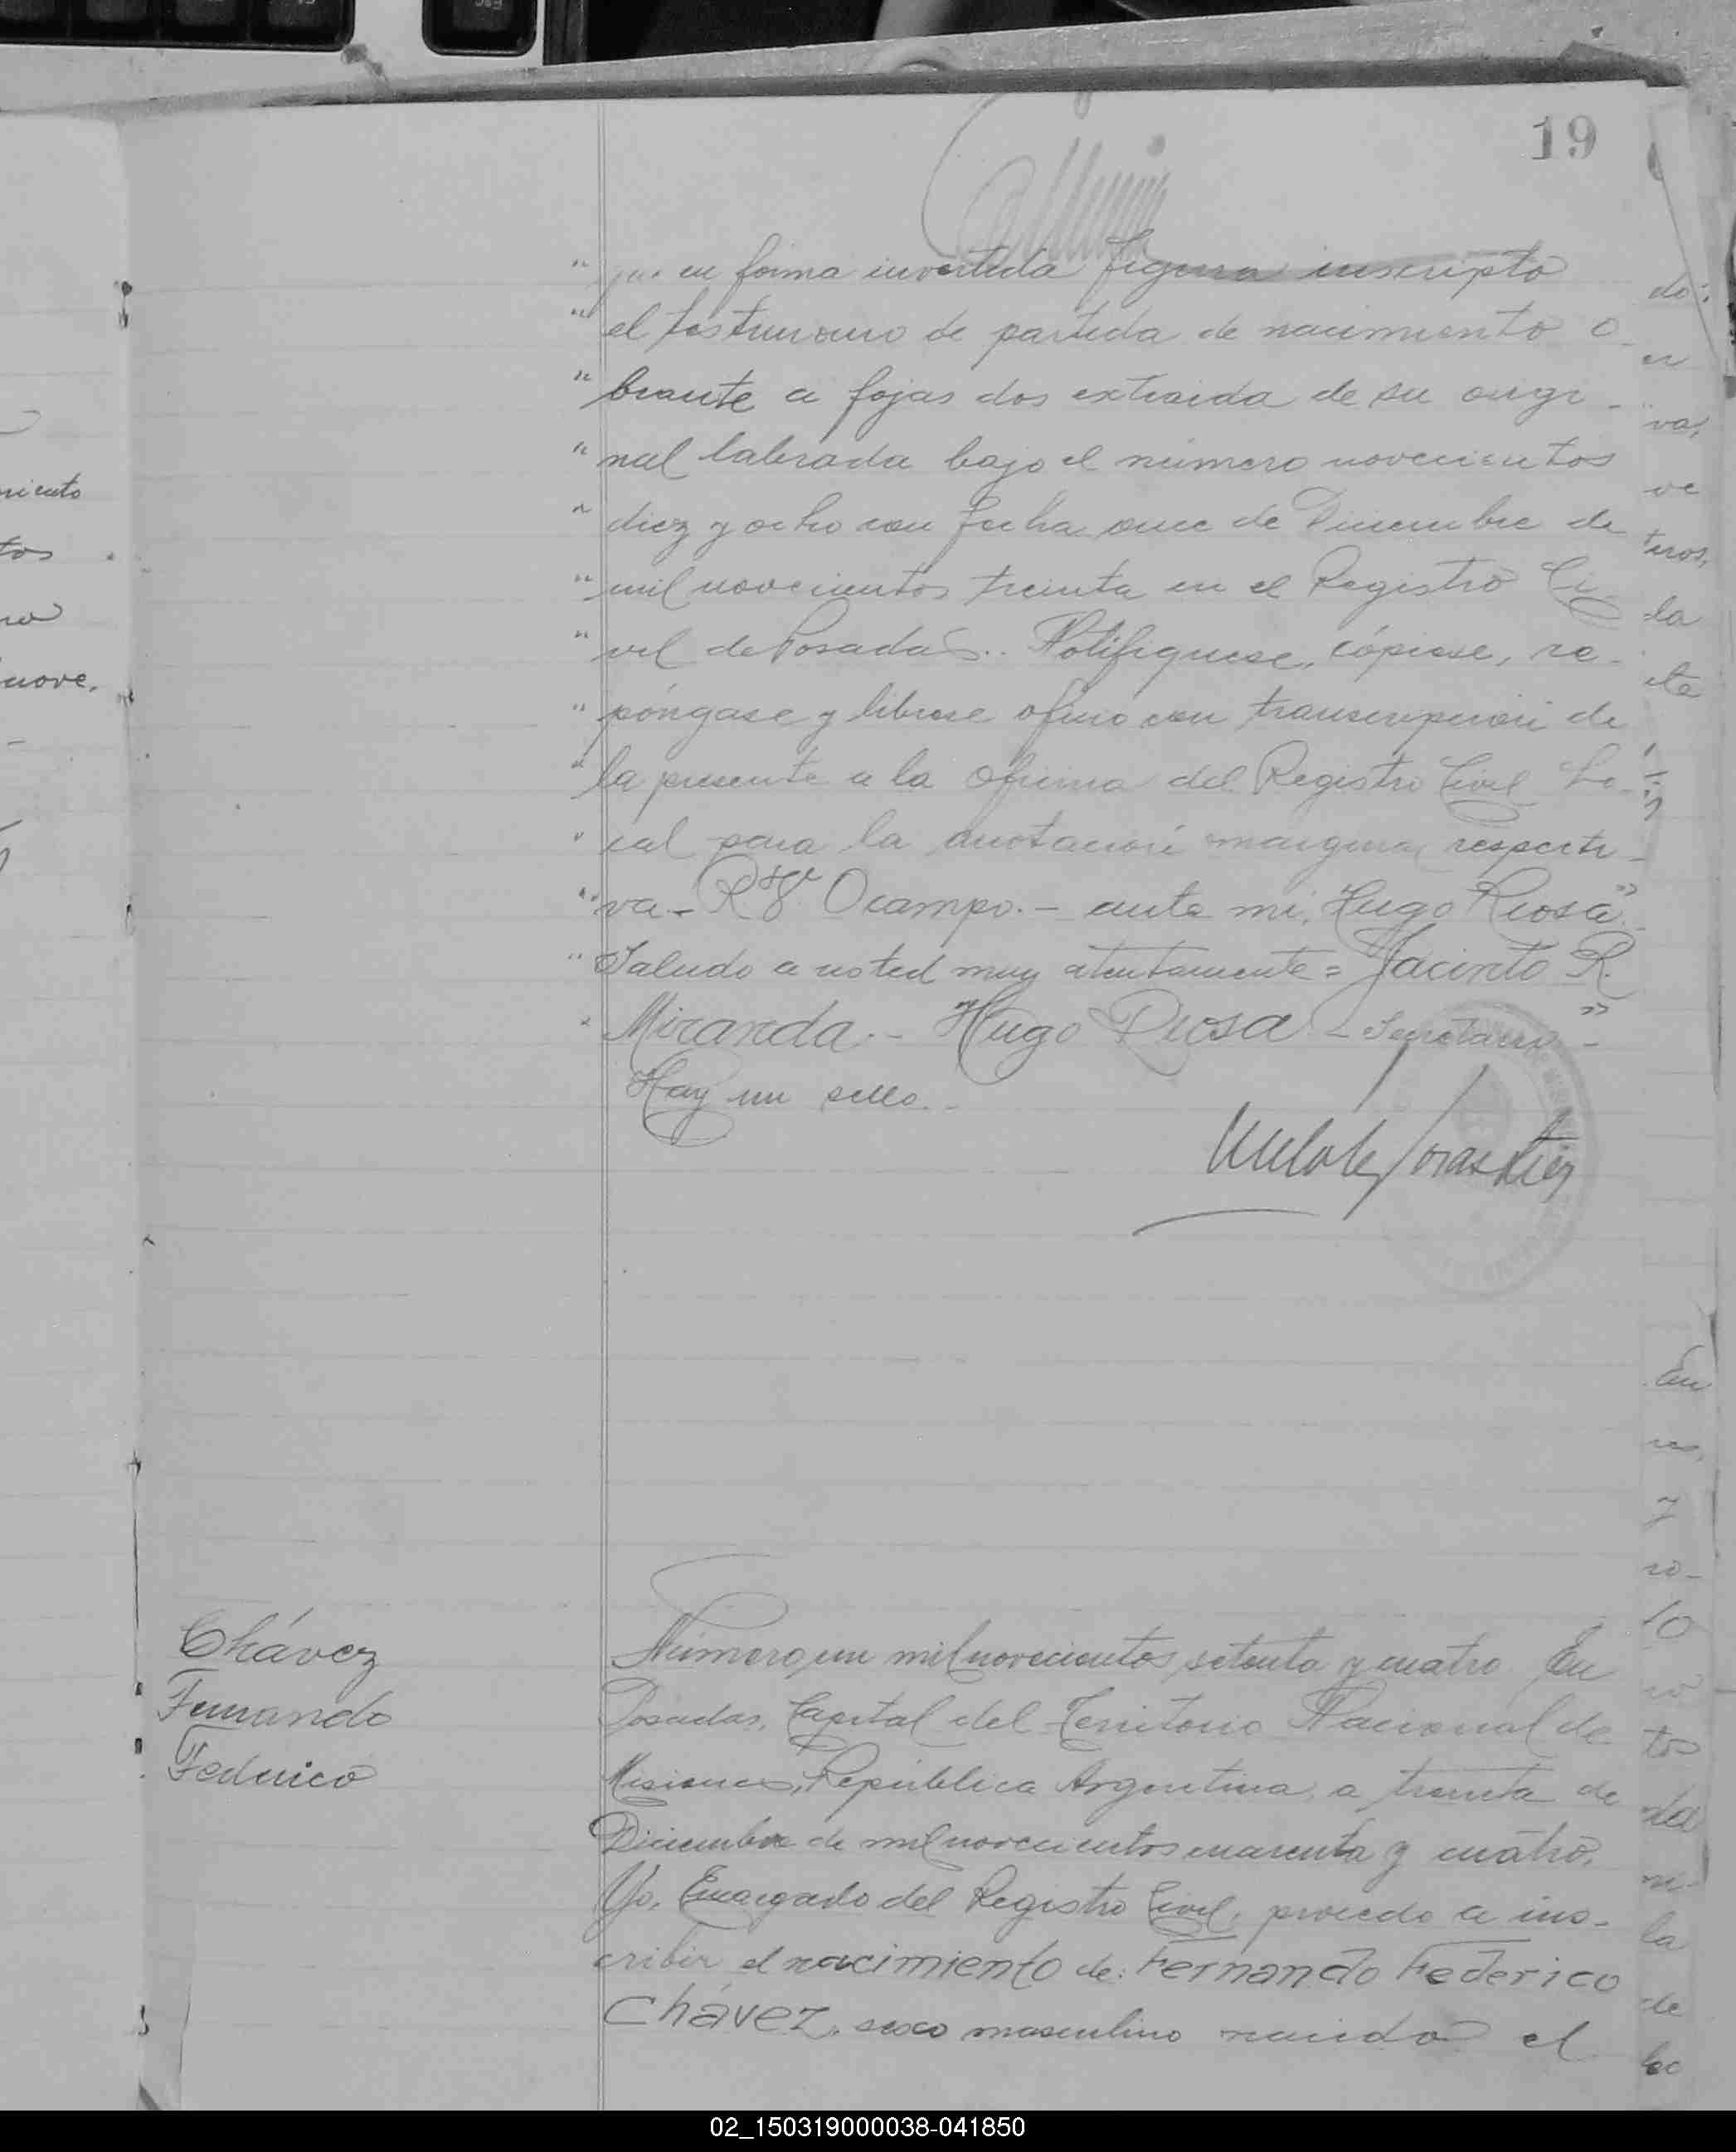 19
" que en forma invertida figura inscripto
" el testimonio de partida de nacimiento o-
" brante a fojas dos extraida de su origi-
" nal labrada bajo el número novecientos
" diez y ocho con fecha once de Diciembre de
" mil novecientos treinta en el Registro Ci
" vil de Posadas. Notifiquese, cópiese, re-
" póngase y librese oficio con transcripción de
" la presente a la oficina del Registro Civil Lo-
" cal para la anotación marginal respecti-
" va - Ocampo. - ante mi, Hugo Riosa"
" Saludo a usted muy atentamente = Jacinto R.
" Miranda. - Hugo Riosa - Secretario "-
Hay un sello. -
Chávez
Fernando
Federico
Número, un mil novecientos, setenta y cuatro En
Posadas, Capital del Territorio Nacional de
Misiones, República Argentina, a treinta de
Diciembre de mil novecientos cuarenta y cuatro,
Yo, Encargado del Registro Civil, procedo a ins-
cribir el nacimiento de: Fernando Federico
Chávez, sexo masculino nacido el
02_150319000038-041850